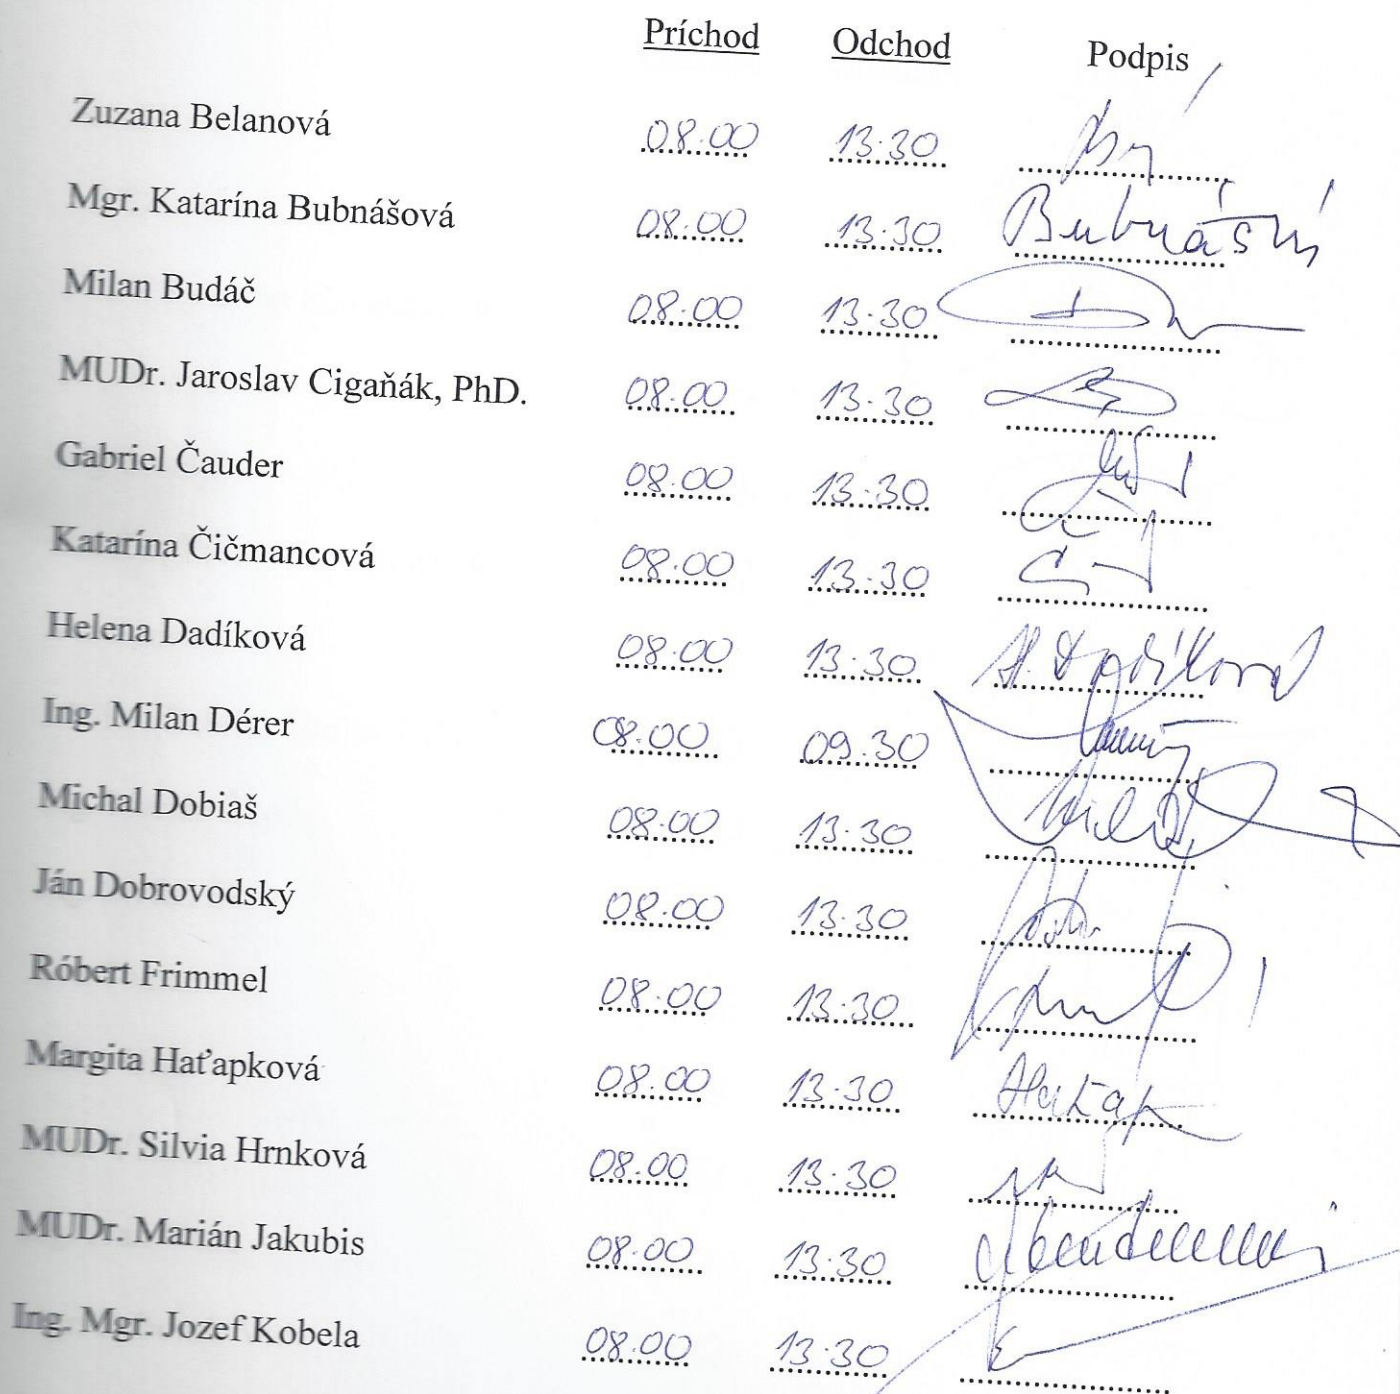 Príchod Odchod Podpis
Zuzana Belanová 08.00 13.30
Mgr. Katarína Bubnášová 08.00 13.30
Milan Budáč 08.00 13.30
MUDr. Jaroslav Cigaňák, PhD. 08.00 13.30
Gabriel Čauder 08.00 13.30
Katarína Čičmancová 08.00 13.30
Helena Dadíková 08.00 13.30 H. Dadíková
Ing. Milan Dérer 08.00 09.30
Michal Dobiaš 08.00 13.30
Ján Dobrovodský 08.00 13.30
Róbert Frimmel 08.00 13.30
Margita Haťapková 08.00 13.30
MUDr. Silvia Hrnková 08.00 13.30
MUDr. Marián Jakubis 08.00 13.30
Ing. Mgr. Jozef Kobela 08.00 13.30